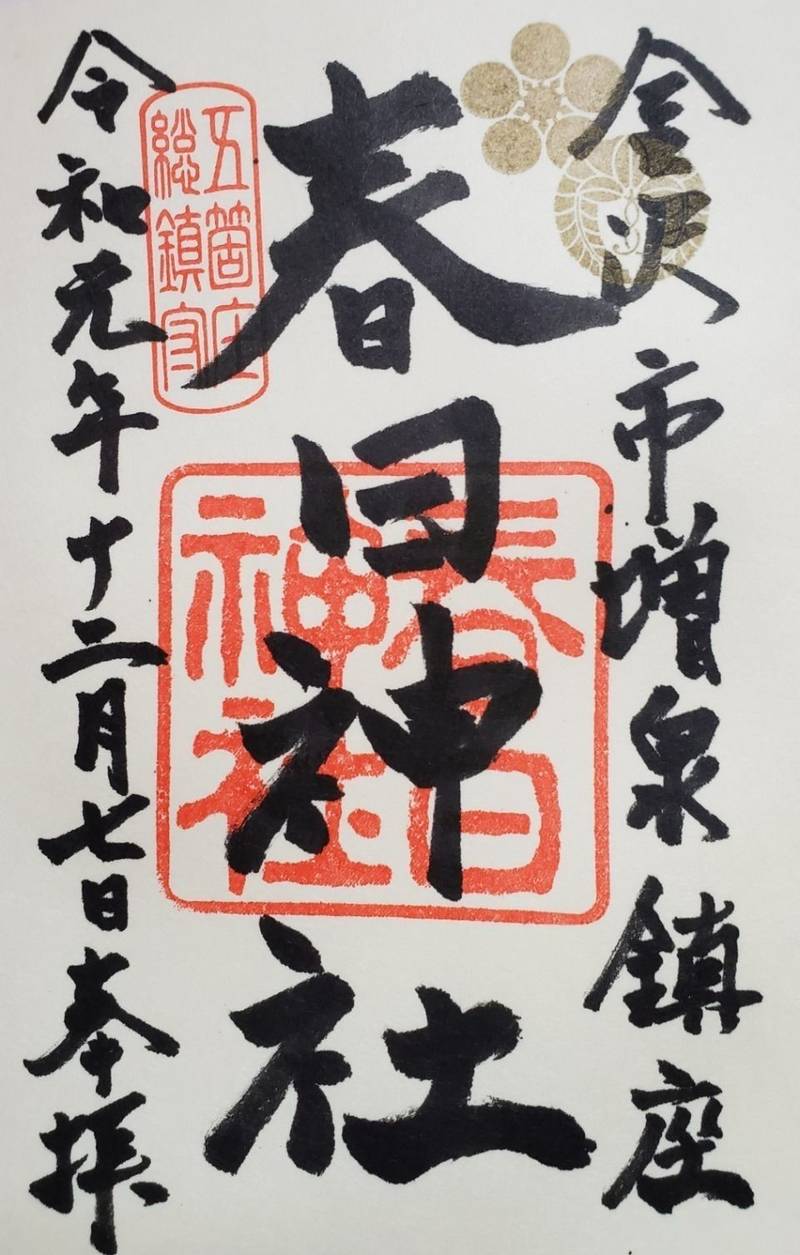 金沢市増泉鎮座
春日神社
春日
神社
五箇庄
総鎮守
令和元年十二月七日奉拝